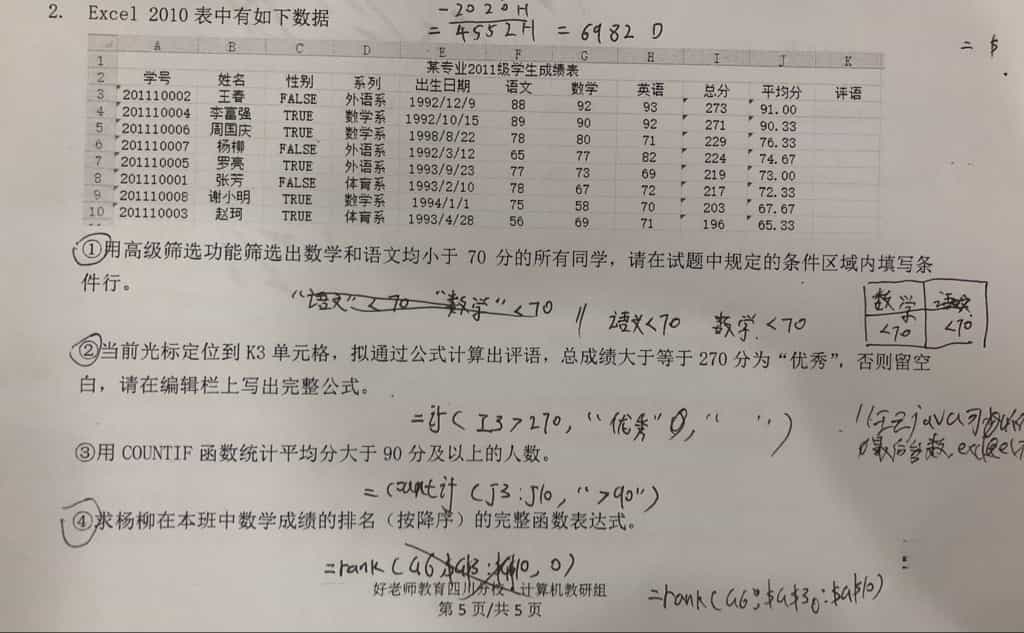 -2020H
2. Excel 2010 表中有如下数据
= 4552H = 6982 D
= $
A B C D E F G H I J K
1 某专业2011级学生成绩表
2 学号 姓名 性别 系列 出生日期 语文 数学 英语 总分 平均分 评语
3 201110002 王春 FALSE 外语系 1992/12/9 88 92 93 273 91.00
4 201110004 李富强 TRUE 数学系 1992/10/15 89 90 92 271 90.33
5 201110006 周国庆 TRUE 数学系 1998/8/22 78 80 71 229 76.33
6 201110007 杨柳 FALSE 外语系 1992/3/12 65 77 82 224 74.67
7 201110005 罗亮 TRUE 外语系 1993/9/23 77 73 69 219 73.00
8 201110001 张芳 FALSE 体育系 1993/2/10 78 67 72 217 72.33
9 201110008 谢小明 TRUE 数学系 1994/1/1 75 58 70 203 67.67
10 201110003 赵珂 TRUE 体育系 1993/4/28 56 69 71 196 65.33
①用高级筛选功能筛选出数学和语文均小于 70 分的所有同学，请在试题中规定的条件区域内填写条
件行。
"语文"<70 "数学"<70 // 语文<70 数学<70
数学 语文
<70 <70
②当前光标定位到 K3 单元格，拟通过公式计算出评语，总成绩大于等于 270 分为“优秀”，否则留空
白，请在编辑栏上写出完整公式。
=if( I3>270, "优秀", " ")
③用 COUNTIF 函数统计平均分大于 90 分及以上的人数。
=countif (j3:j10, ">90")
④求杨柳在本班中数学成绩的排名（按降序）的完整函数表达式。
=rank(G6,$G$3:$G$10, 0)
好老师教育四川分校·计算机教研组
=rank(G6,$G$3:$G$10)
第 5 页/共 5 页